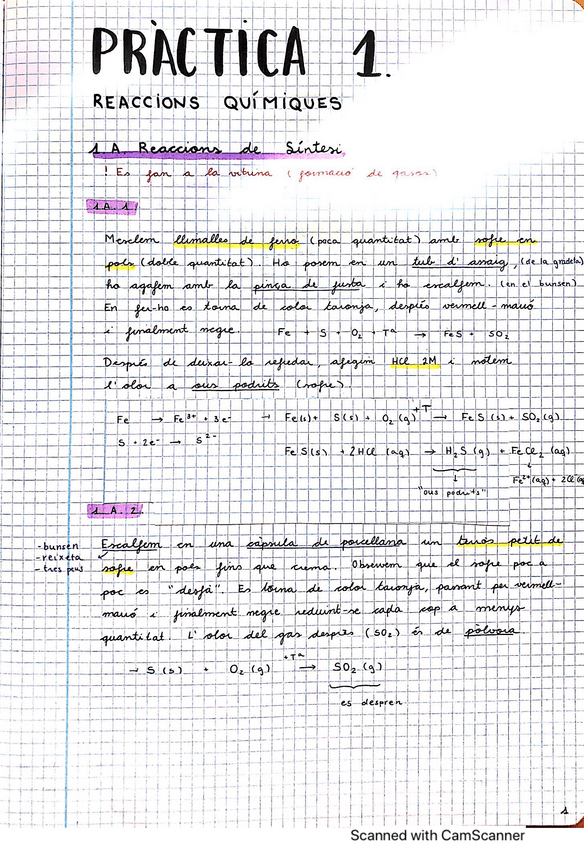 PRÀCTICA 1.
REACCIONS QUÍMIQUES
1.A. Reaccions de Síntesi.
! Es fan a la vitrina (formació de gasos)
1A.1.
Mesclem llimalles de ferro (poca quantitat) amb sofre en
pols (doble quantitat). Ho posem en un tub d'assaig, (de la gradeta)
ho agafem amb la pinça de fusta i ho escalfem. (en el bunsen)
En fer-ho es torna de color taronja, després vermell-marró
i finalment negre. Fe + S + O₂ + Tª → FeS + SO₂
Després de deixar-lo refredar, afegim HCl 2M i notem
l'olor a ous podrits (sofre).
Fe → Fe³⁺ + 3e⁻ → Fe(s) + S(s) + O₂(g) +T → FeS(s) + SO₂(g)
S + 2e⁻ → S²⁻
FeS(s) + 2HCl (aq) → H₂S(g) + FeCl₂ (aq)
↓ ↓
"ous podrits" Fe²⁺(aq) + 2Cl⁻
1A.2.
-bunsen
-reixeta
-tres peus
Escalfem en una càpsula de porcellana un tros petit de
sofre en pols fins que crema. Observem que el sofre poc a
poc es "desfà". Es torna de color taronja, passant per vermell-
marró i finalment negre reduint-se cada cop a menys
quantitat. L'olor del gas després (SO₂) és de pólvora.
→ S(s) + O₂(g) +Tª → SO₂(g)
es despren
1
Scanned with CamScanner